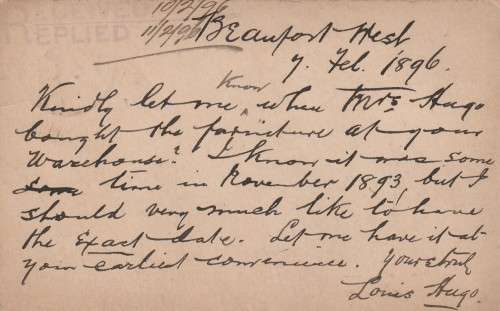 RECEIVED 10/2/96
REPLIED 11/2/96
Beaufort West
7. Feb. 1896.
Kindly let me know when Mrs. Hugo
bought the furniture at your
Warehouse? I know it was some
some time in November 1893, but I
should very much like to have
the exact date. Let me have it at
your earliest convenience. Yours truly
Louis Hugo.